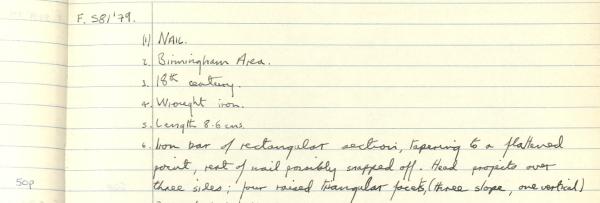 F. S81'79.
(1) NAIL.
2. Birmingham Area.
3. 18th century.
4. Wrought iron.
5. Length 8.6 cms.
6. Iron bar of rectangular section, tapering to a flattened
point, rest of nail possibly snapped off. Head projects over
50p three sides; four raised triangular facets, (three slope, one vertical)